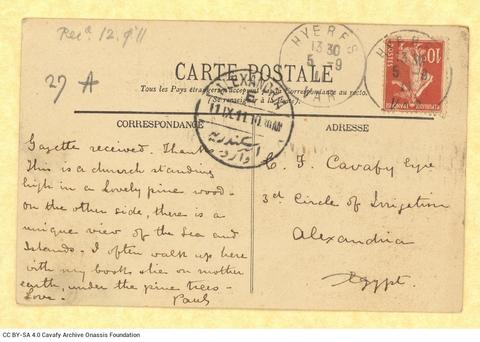 Recd. 12.9.'11
27 A
HYERES
13 30
5 - 9
VAR
HYERES
13 30
5 - 9
10
POSTES
CARTE POSTALE
Tous les Pays étrangers n'acceptent pas la Correspondance au recto.
(Se renseigner à la Poste).
ALEXANDRIA
E
11.IX.11.10.
اسكندرية
وارد
CORRESPONDANCE
ADRESSE
Gazette received. Thanks
This is a church standing
high in a lovely pine wood -
on the other side, there is a
unique view of the sea and
Islands. I often walk up here
with my books & lie on mother
earth, under the pine trees -
Love. Paul
C. F. Cavafy Eqre
3d Circle of Irrigation
Alexandria
Egypt.
CC BY-SA 4.0 Cavafy Archive Onassis Foundation